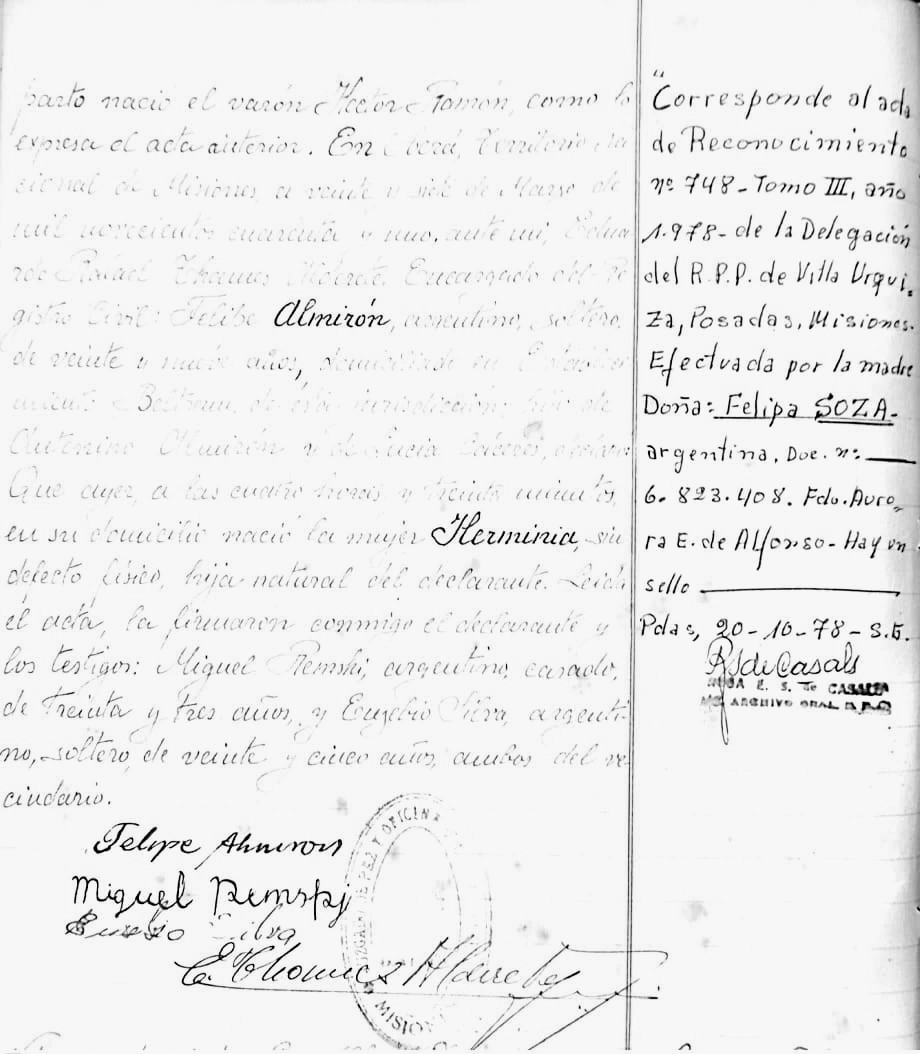 parto nació el varón Hector Ramón, como lo
expresa el acta anterior. En Oberá, Territorio Na
cional de Misiones, a veinte y siete de Marzo de
mil novecientos cuarenta y uno, ante mi, Edua
rdo Rafael Thames Alderete, Encargado del Re
gistro Civil: Felibe Almirón, argentino, soltero,
de veinte y nueve años, domiciliado en Estableci
miento Beltrem, de esta jurisdicción, hijo de
Antenino Almirón y de Lucia Cáceres, declaró:
Que ayer, a las cuatro horas y treinta minutos,
en su domicilio nació la mujer Herminia, sin
defecto físico, hija natural del declarante. Leida
el acta, la firmaron conmigo el declarante y
los testigos: Miguel Remski, argentino, casado,
de treinta y tres años, y Eugebio Silva, argenti-
no, soltero, de veinte y cinco años, ambos del ve
cindario.
Felipe Almiron
Miguel Remski
Silva
E. Thames Alderete
JUZGADO DE PAZ Y OFICINA
MISIONES
"Corresponde al acta
de Reconocimiento
nº 748-Tomo III, año
1.978- de la Delegación
del R.P.P. de Villa Urqui-
za, Posadas, Misiones.
Efectuada por la madre
Doña: Felipa SOZA-
argentina, Doc. nº:
6.823.408. Fdo. Auro-
ra E. de Alfonso-Hay un
sello
Pdas, 20-10-78-S.G.
RSdeCasals
ROSA E. S. de CASALS
ARCHIVO GRAL. R.P.